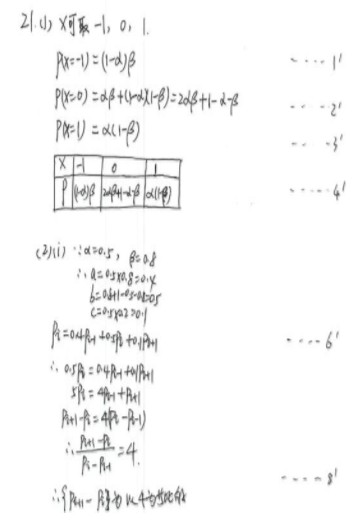 21.(1) X可取 -1, 0, 1.
P(X=-1) = (1-α)β ……1'
P(X=0) = αβ+(1-α)(1-β) = 2αβ+1-α-β ……2'
P(X=1) = α(1-β) ……3'
X -1 0 1
P (1-α)β 2αβ+1-α-β α(1-β) ……4'
(2)(i) ∵α=0.5, β=0.8
∴a=0.5×0.8=0.4
b=0.8+1-0.5-0.8=0.5
c=0.5×0.2=0.1
Pi=0.4Pi-1+0.5Pi+0.1Pi+1 ……6'
∴0.5Pi=0.4Pi-1+0.1Pi+1
5Pi=4Pi-1+Pi+1
Pi+1-Pi=4(Pi-Pi-1)
∴(Pi+1-Pi)/(Pi-Pi-1)=4.
……8'
∴{Pi+1-Pi}为以4为